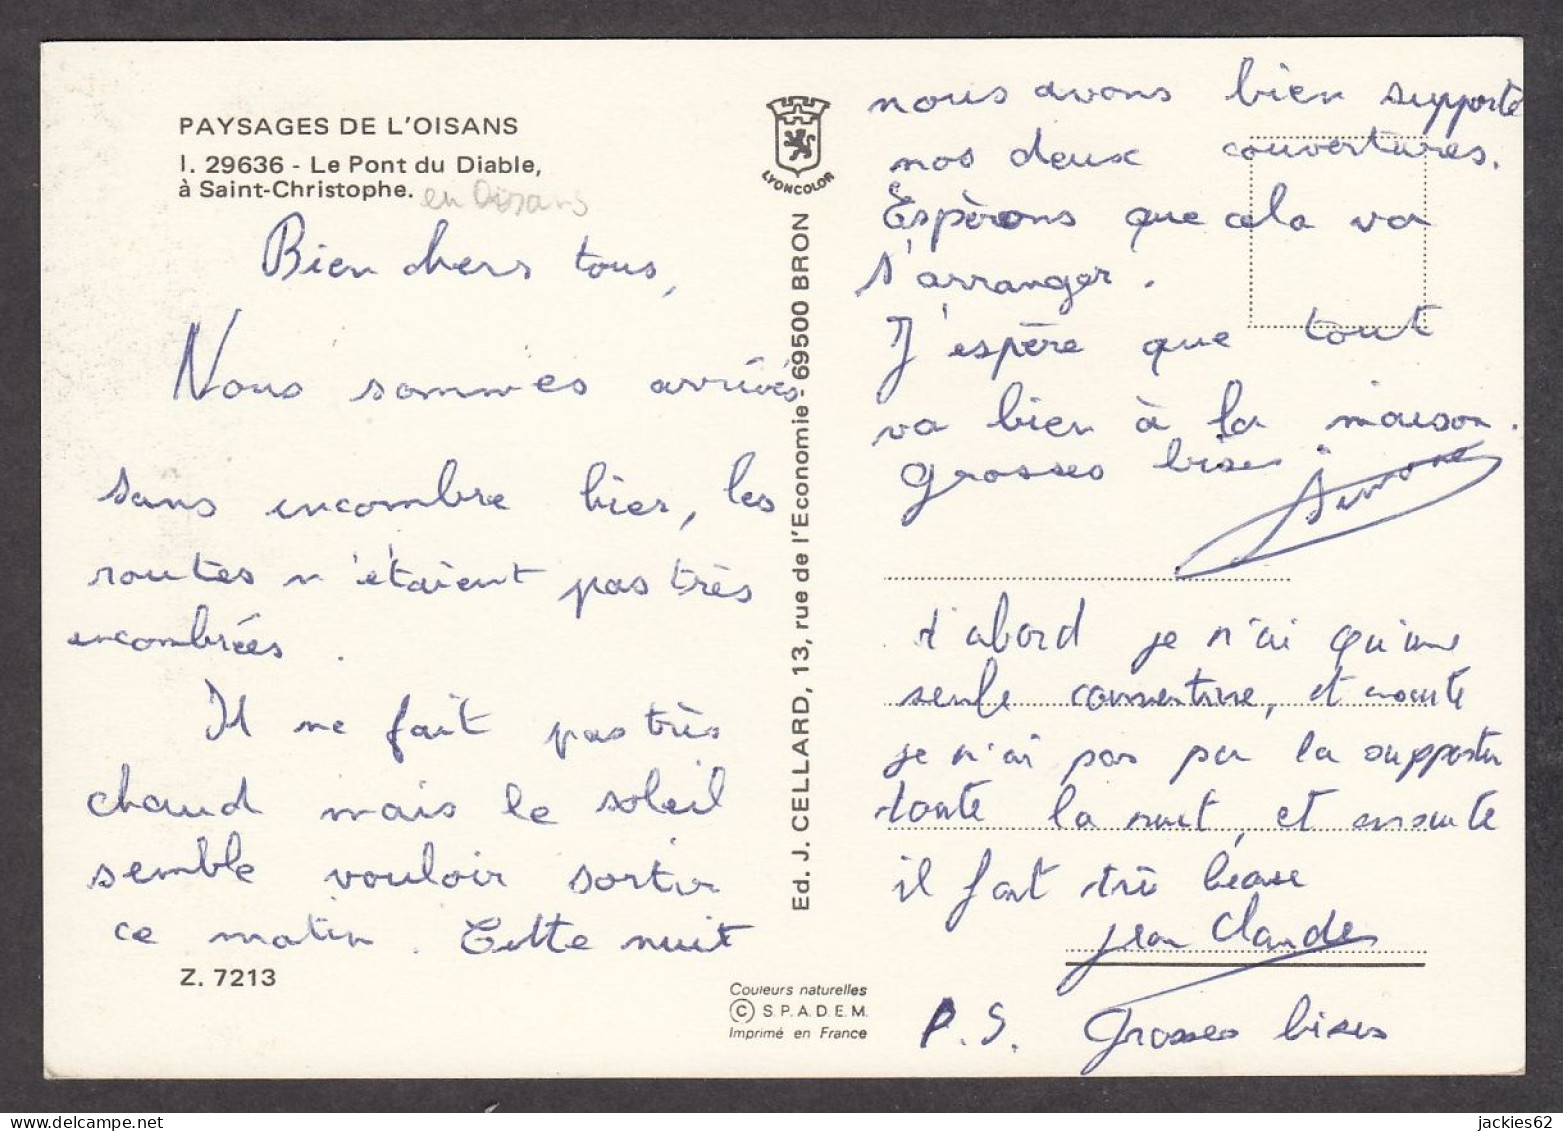 PAYSAGES DE L'OISANS
I. 29636 - Le Pont du Diable,
à Saint-Christophe. en Oisans
Bien chers tous,
Nous sommes arrivés
sans encombre hier, les
routes n'étaient pas très
encombrées.
Il ne fait pas très
chaud mais le soleil
semble vouloir sortir
ce matin. Cette nuit
Z. 7213
LYONCOLOR
Ed. J. CELLARD, 13, rue de l'Economie - 69500 BRON
Couleurs naturelles
© S.P.A.D.E.M.
Imprimé en France
nous avons bien supporté
nos deux couvertures.
Espèrons que cela va
s'arranger.
J'espère que tout
va bien à la maison.
Grosses bises.
Simone
d'abord je n'ai qu'une
seule couverture, et ensuite
je n'ai pas pu la supporter
toute la nuit, et ensuite
il fait très beau
jean Claude
P.S. Grosses bises
jackies62